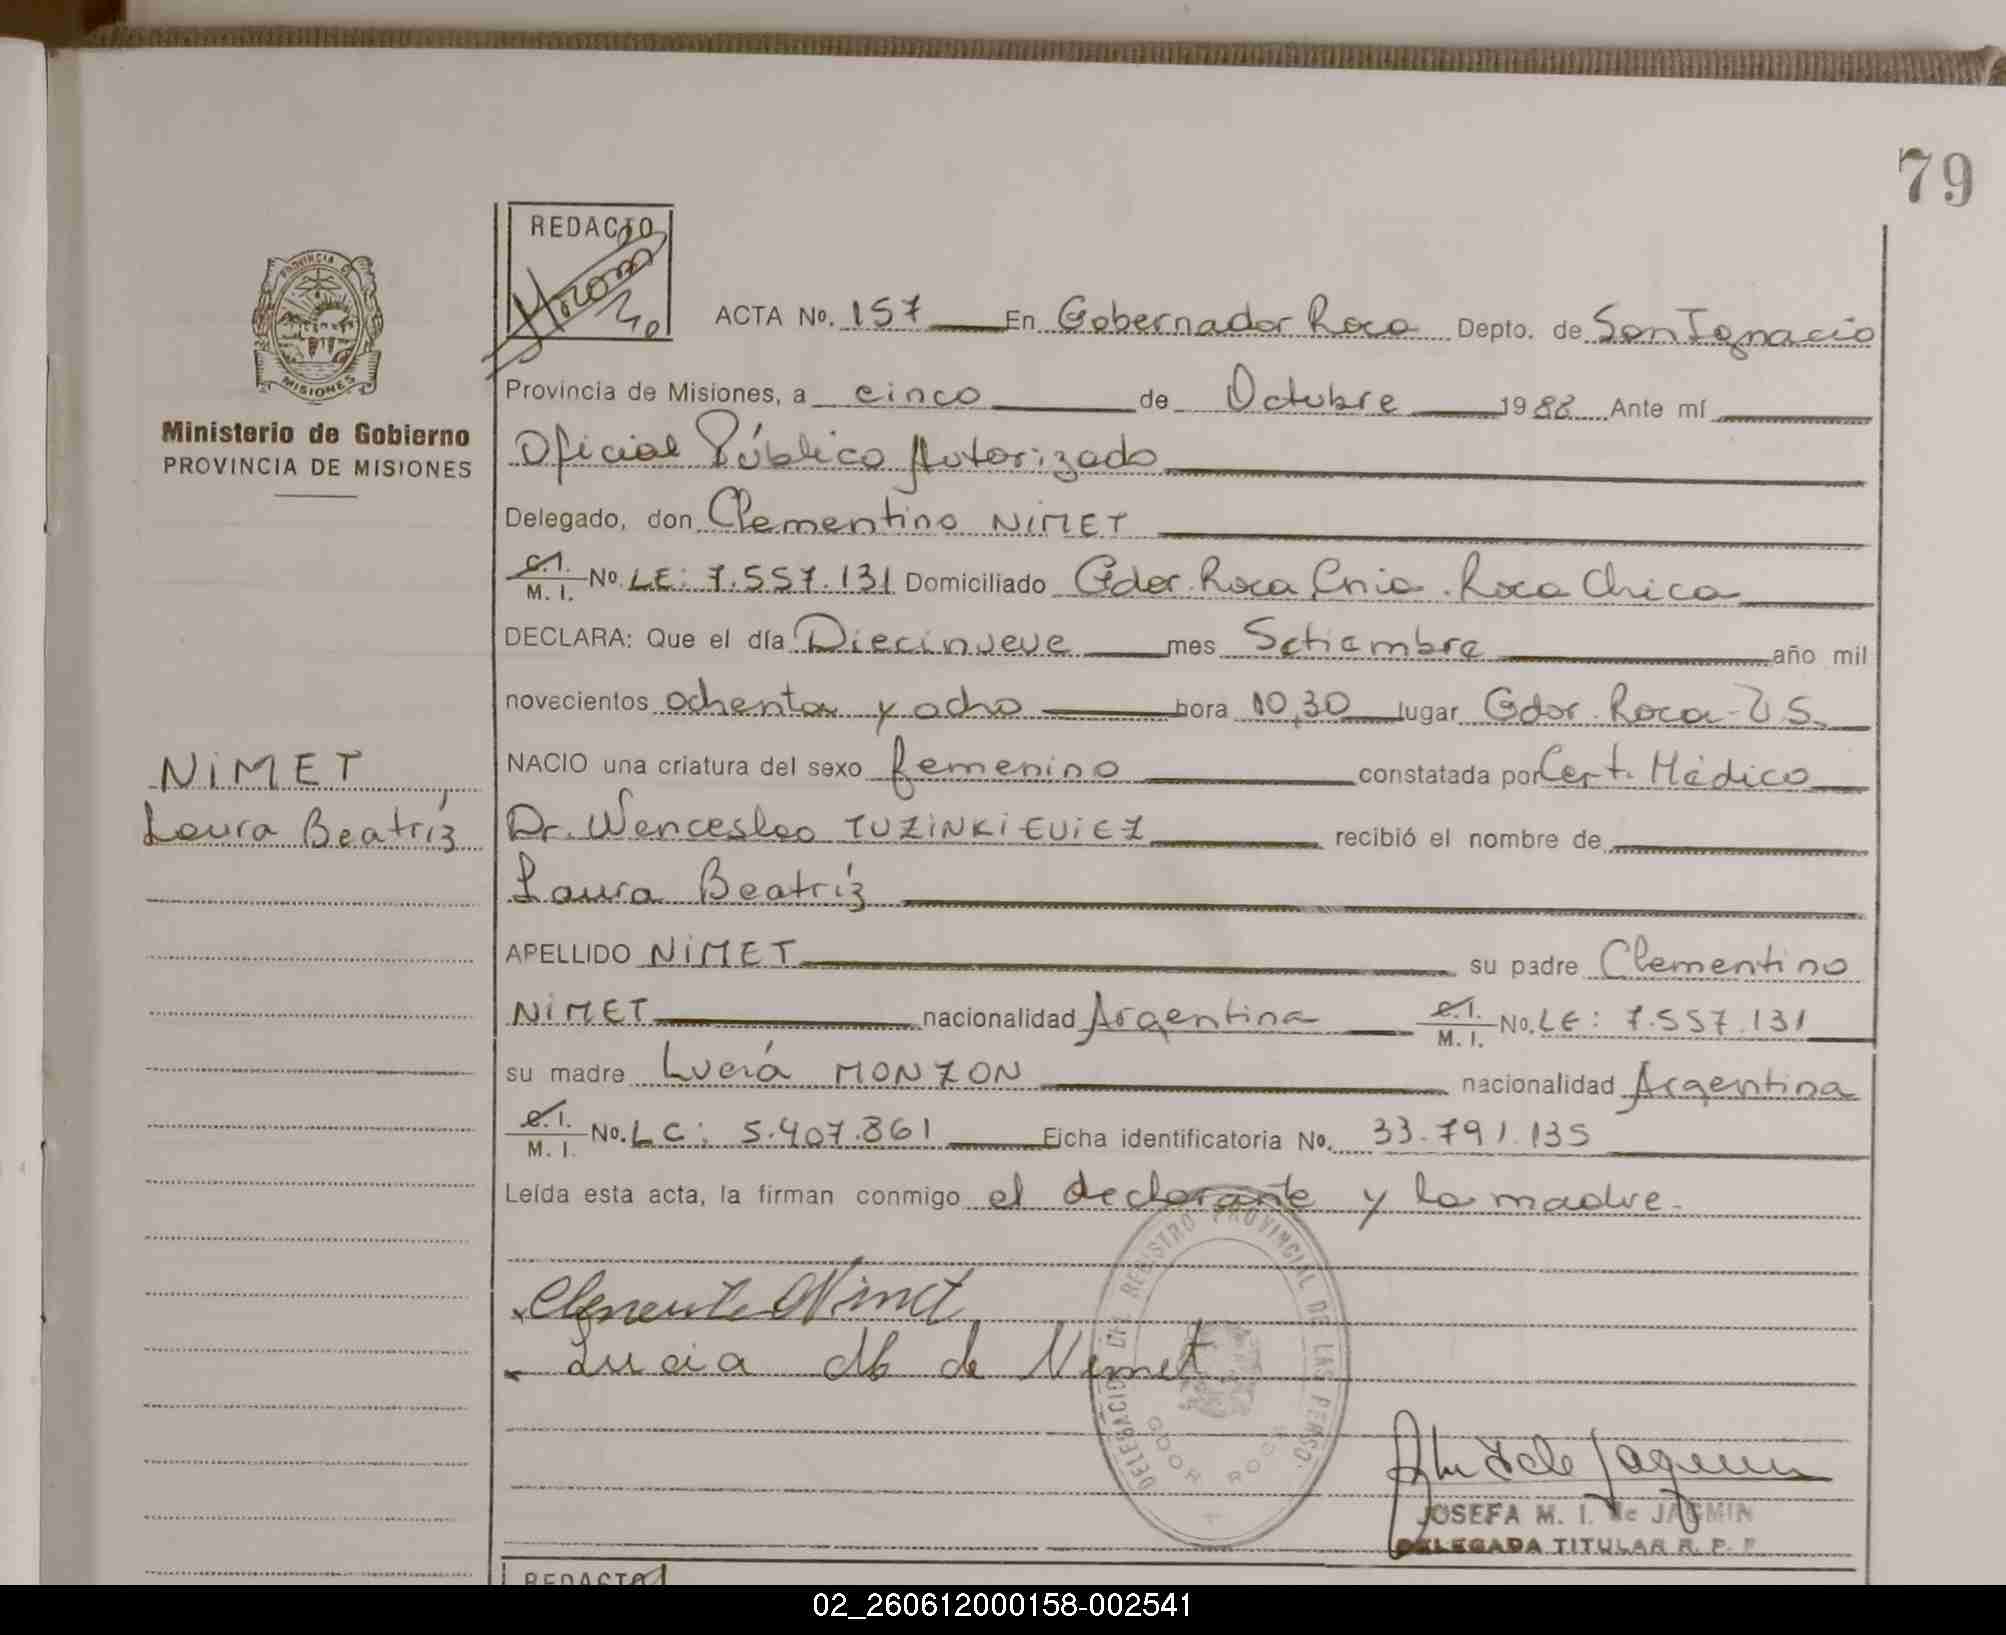 79
REDACTO
ACTA No. 157 En Gobernador Roca Depto. de San Ignacio
PROVINCIA DE
MISIONES
Provincia de Misiones, a cinco de Octubre 1988 Ante mí
Ministerio de Gobierno
PROVINCIA DE MISIONES
Oficial Público Autorizado
Delegado, don Clementino NIMET
C.I. / M. I. No. LE: 7.557.131 Domiciliado Gdor. Roca Cnia. Roca Chica
DECLARA: Que el día Diecinueve mes Setiembre año mil
novecientos ochenta y ocho hora 10,30 lugar Gdor. Roca - U S.
NIMET
Laura Beatríz
NACIO una criatura del sexo femenino constatada por Cert. Médico
Dr. Wenceslao TUZINKIEVIEZ recibió el nombre de
Laura Beatríz
APELLIDO NIMET su padre Clementino
NIMET nacionalidad Argentina C.I. / M. I. No. LE: 7.557.131
su madre Lucía MONZON nacionalidad Argentina
C.I. / M. I. No. LC: 5.407.861 Ficha identificatoria No. 33.791.135
Leída esta acta, la firman conmigo el declarante y la madre.
DELEGACION DEL REGISTRO PROVINCIAL DE LAS PERSO.
GDOR ROCA
Clemente Nimet
Lucia M de Nimet
JOSEFA M. I. de JAGMIN
DELEGADA TITULAR R. P. P.
REDACTO
02_260612000158-002541